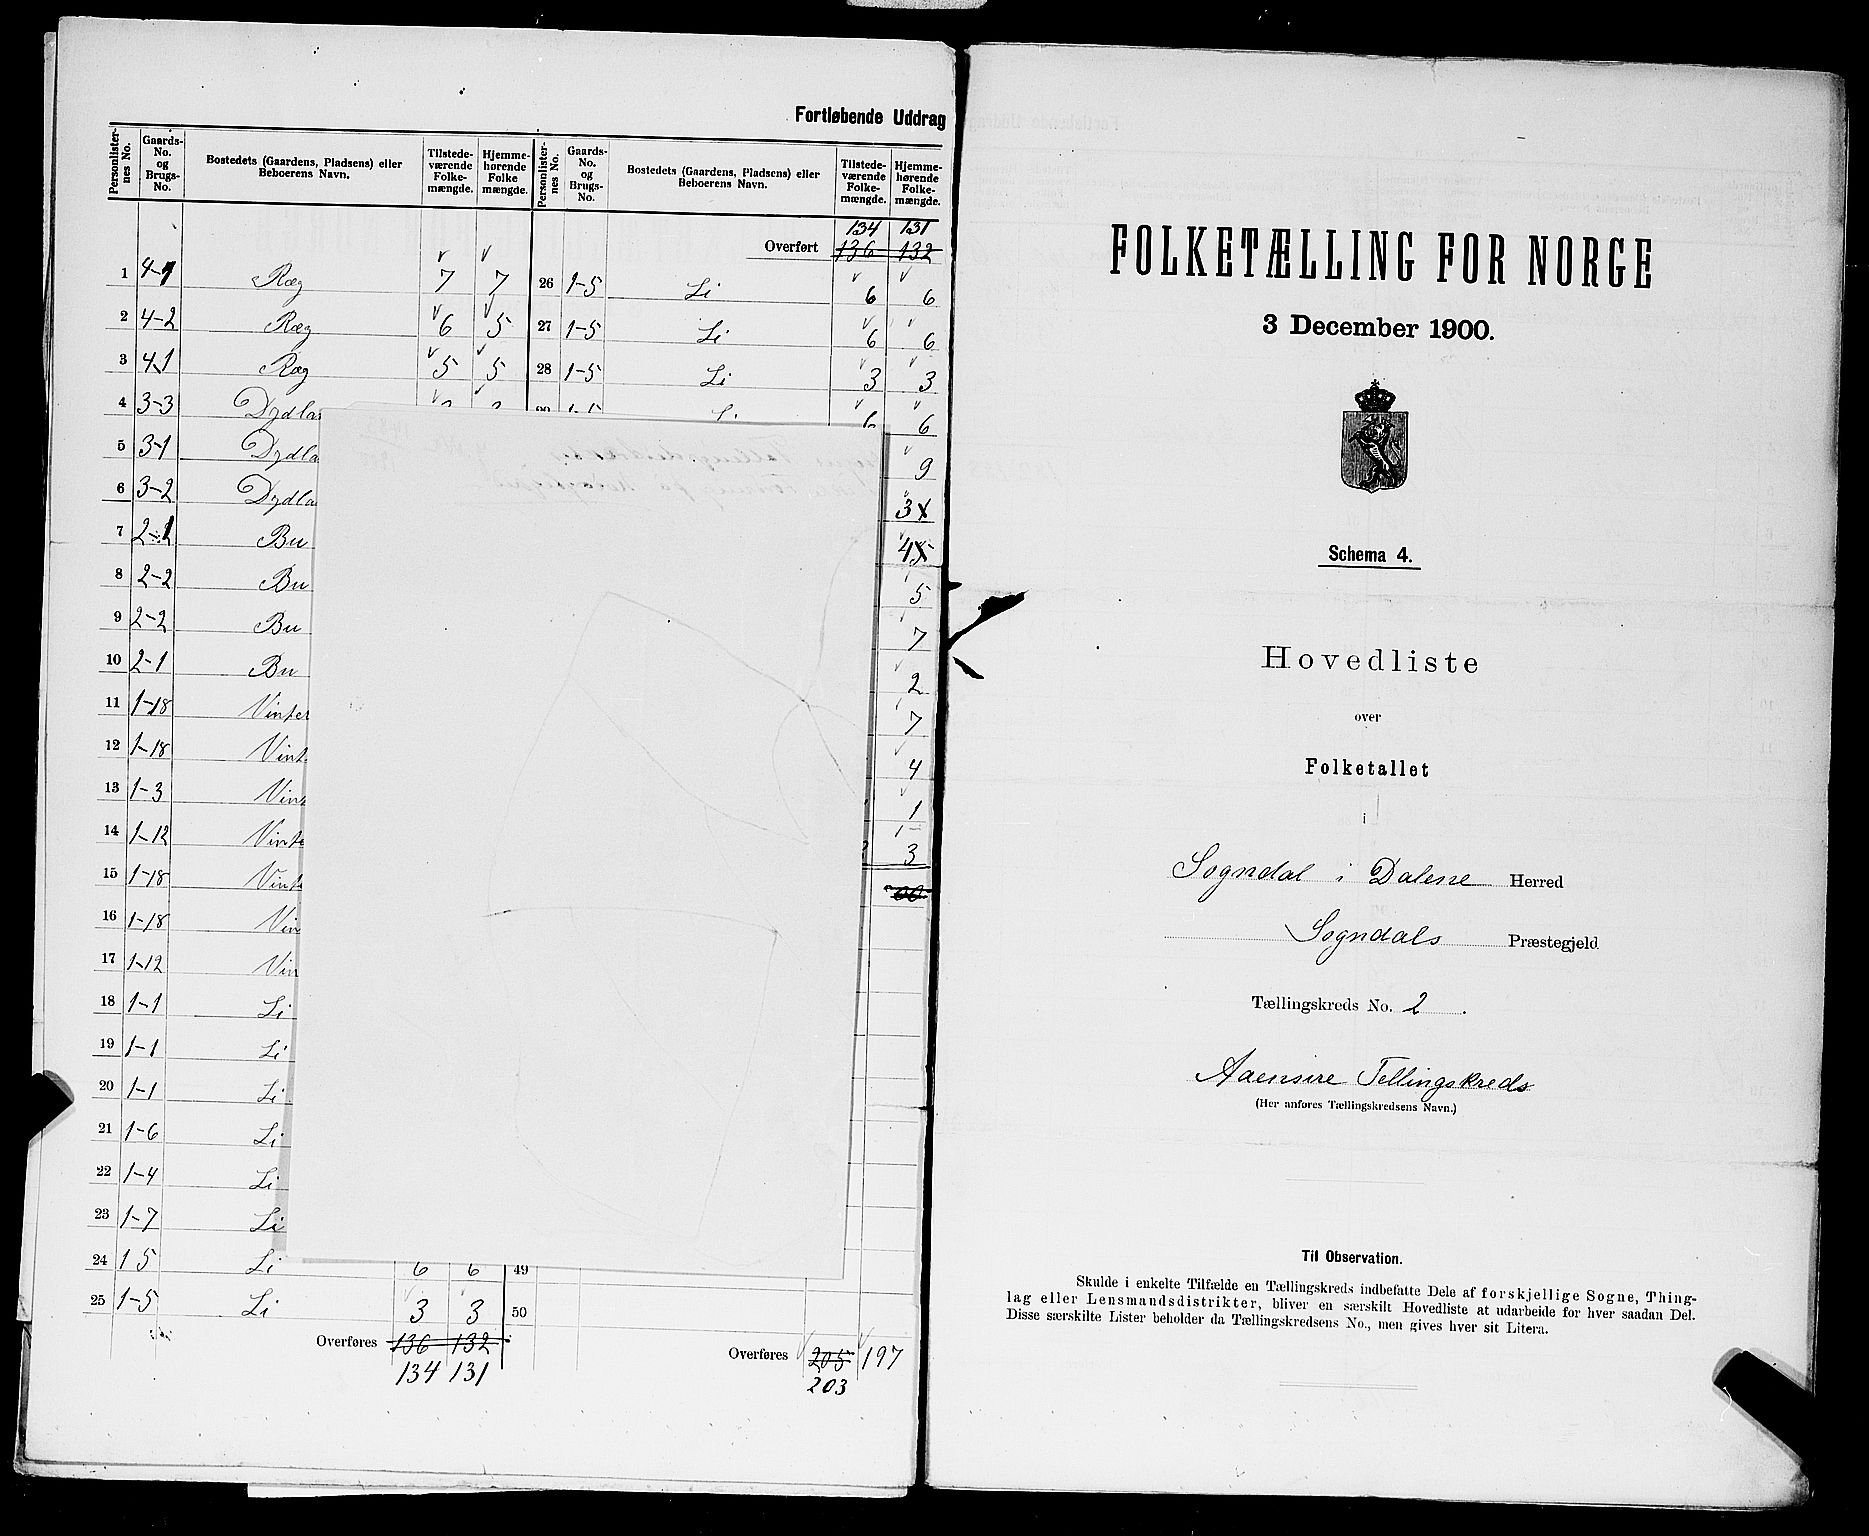 Fortløbende Uddrag
Personlister-nes No. | Gaards-No. og Brugs-No. | Bostedets (Gaardens, Pladsens) eller Beboerens Navn. | Tilstede-værende Folke-mængde. | Hjemme-hørende Folke mængde. | Personlister-nes No. | Gaards-No. og Brugs-No. | Bostedets (Gaardens, Pladsens) eller Beboerens Navn. | Tilstede-værende Folke-mængde. | Hjemme-hørende Folke-mængde.
134 131
Overført 136 132
1 4-1 Ræg 7 7 26 1-5 Li 6 6
2 4-2 Ræg 6 5 27 1-5 Li 6 6
3 4-1 Ræg 5 5 28 1-5 Li 3 3
4 3-3 Dydla 6 6
5 3-1 Dydla 9
6 3-2 Dydla 3
7 2-1 Bu 4
8 2-2 Bu 5
9 2-2 Bu 7
10 2-1 Bu 2
11 1-18 Vinter 7
12 1-18 Vint 4
13 1-3 Vint 1
14 1-12 Vinte 3
15 1-18 Vinte
16 1-18 Vin
17 1-12 Vin
18 1-1 Li
19 1-1 Li
20 1-1 Li
21 1-6 Li
22 1-4 Li
23 1-7 Li
24 1 5 Li 6 6 49
25 1-5 Li 3 3 50
Overføres 136 132 Overføres 205 197
134 131 203
FOLKETÆLLING FOR NORGE
3 December 1900.
Schema 4.
Hovedliste
over
Folketallet
i
Sogndal i Dalene Herred
Sogndals Præstegjeld
Tællingskreds No. 2.
Aaensire Tellingskreds
(Her anføres Tællingskredsens Navn.)
Til Observation.
Skulde i enkelte Tilfælde en Tællingskreds indbefatte Dele af forskjellige Sogne, Thing-
lag eller Lensmandsdistrikter, bliver en særskilt Hovedliste at udarbeide for hver saadan Del.
Disse særskilte Lister beholder da Tællingskredsens No., men gives hver sit Litera.